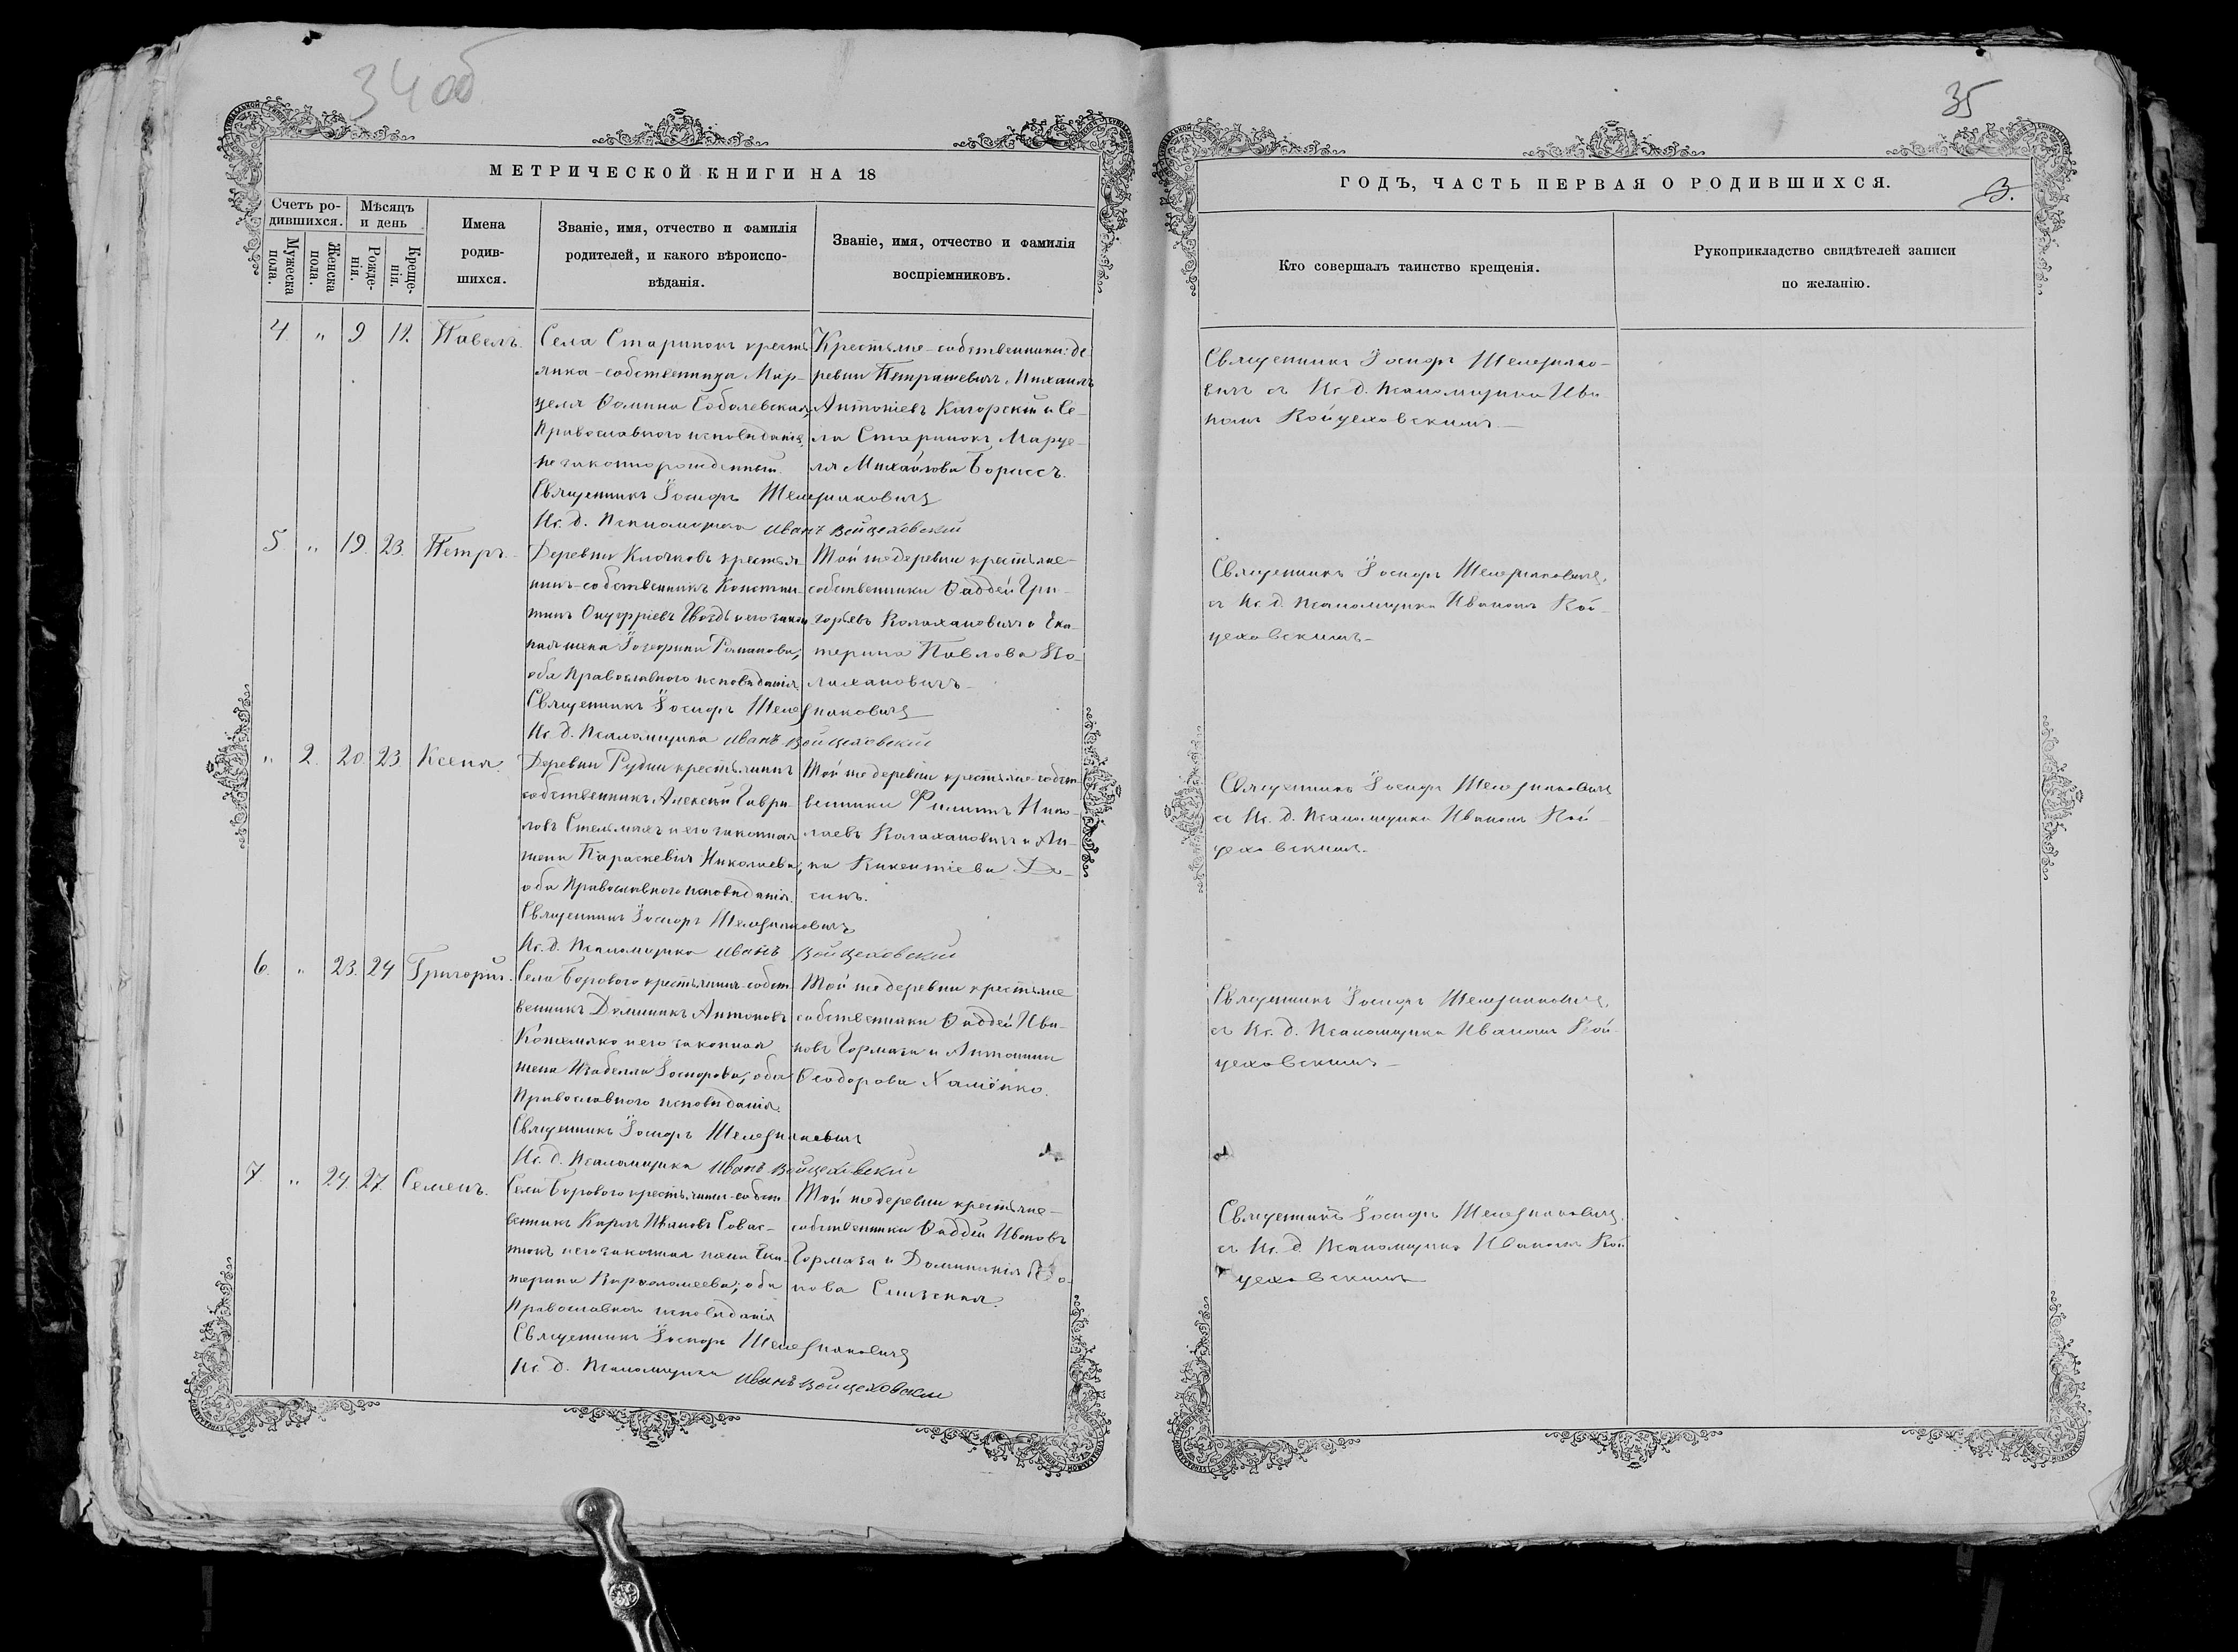 34 об
МЕТРИЧЕСКОЙ КНИГИ НА 18
Счетъ ро-
дившихся.
Мѣсяцъ
и день
Мужеска
пола.
Женска
пола.
Рожде-
нія.
Креще-
нія.
Имена
родив-
шихся.
Званіе, имя, отчество и фамилія
родителей, и какого вѣроиспо-
вѣданія.
Званіе, имя, отчество и фамилія
воспріемниковъ.
4. " 9 12. Павелъ.
Села Старинокъ кресть-
янка-собственница Мар-
целя Ѳомина Соболевская,
Православнаго исповѣданія,
незаконнорожденный.
Священникъ Іосифъ
Ис. д. Псаломщика Иванъ Войцеховскій
Крестьяне-собственники: де-
ревни Петрашевичъ Михаилъ
Антоніевъ и Се-
ла Старинокъ Марце-
ля Михайлова Борисъ.
5. " 19. 23. Петръ.
Деревни Клочковъ крестья-
нинъ-собственникъ Констан-
тинъ Онуфріевъ Гвоздь и его закон-
ная жена Іозефина Романова;
оба Православнаго исповѣданія.
Священникъ Іосифъ
Ис. д. Псаломщика Иванъ Войцеховскій
Той же деревни крестьяне-
собственники Ѳаддей Гри-
горьевъ Колахановичъ и Ека-
терина Павлова Ко-
лахановичъ.
" 2. 20. 23. Ксенія.
Деревни Рудни крестьянинъ
собственникъ Алексѣй Гаври-
ловъ Стельмахъ и его законная
жена Параскевія Николаева;
оба Православнаго исповѣданія.
Священникъ Іосифъ
Ис. д. Псаломщика Иванъ Войцеховскій
Той же деревни крестьяне-собст-
венники Филиппъ Нико-
лаевъ Колахановичъ и Ан-
на Викентіева
6. " 23. 24 Григорій.
Села Борового крестьянинъ-собст-
венникъ Доминикъ Антоновъ
и его законная
жена Изабелла Іосифова; оба
Православнаго исповѣданія.
Священникъ Іосифъ
Ис. д. Псаломщика Иванъ Войцеховскій
Той же деревни крестьяне
собственники Ѳаддей Ива-
новъ Гормаза и Антонина
Ѳеодорова Хамёнко.
7 " 24. 27. Семенъ.
Села Борового крестьянинъ-собст-
венникъ Карлъ Ивановъ Совас-
тюкъ и его законная жена Ека-
терина Варѳоломеева; оба
Православнаго исповѣданія
Священникъ Іосифъ
Ис. д. Псаломщика Иванъ Войцеховскій
Той же деревни крестьяне-
собственники Ѳаддей Ивановъ
Гормаза и Доминикія
35
ГОДЪ, ЧАСТЬ ПЕРВАЯ О РОДИВШИХСЯ.
3.
Кто совершалъ таинство крещенія.
Рукоприкладство свидѣтелей записи
по желанію.
Священникъ Іосифъ
съ Ис. д. Псаломщика Ива-
номъ Войцеховскимъ.
Священникъ Іосифъ
съ Ис. д. Псаломщика Иваномъ Вой-
цеховскимъ.
Священникъ Іосифъ
съ Ис. д. Псаломщика Иваномъ Вой-
цеховскимъ.
Священникъ Іосифъ
съ Ис. д. Псаломщика Иваномъ Вой-
цеховскимъ.
Священникъ Іосифъ
съ Ис. д. Псаломщика Иваномъ Вой-
цеховскимъ